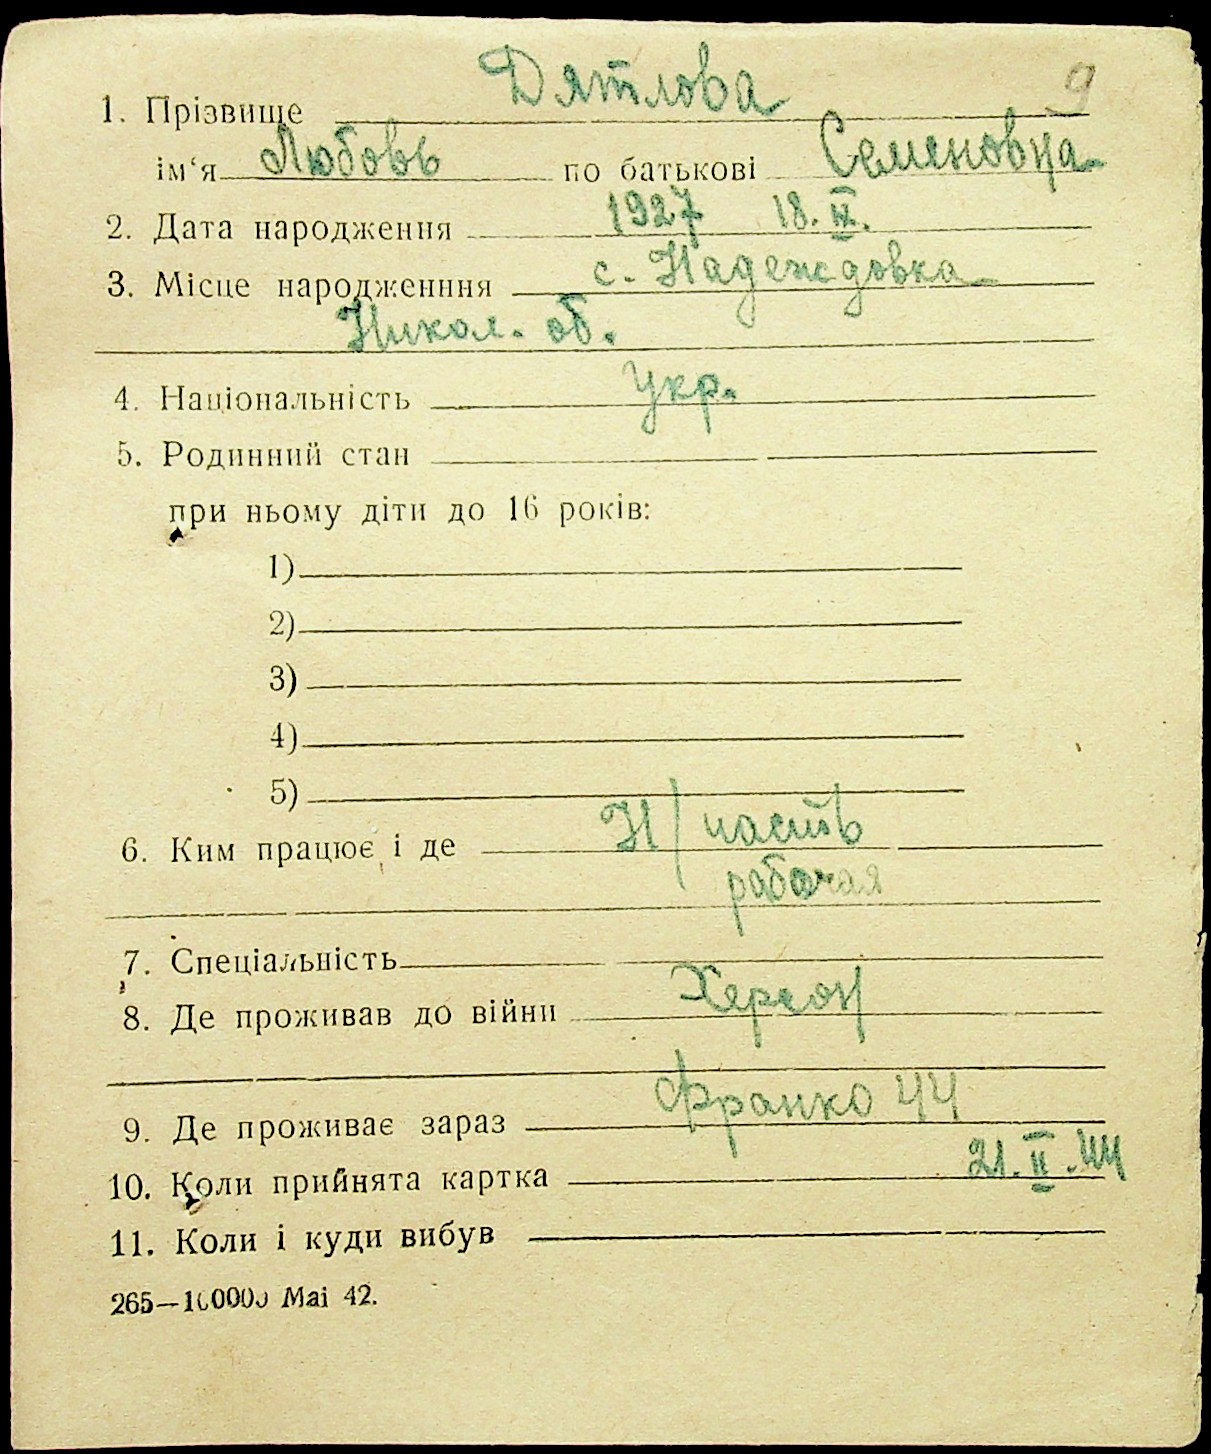 9
1. Прізвище Дятлова
ім‘я Любовь по батькові Семеновна
2. Дата народження 1927 18.IX.
3. Місце народженння с. Надеждовка
Никол. об.
4. Національність Укр.
5. Родинний стан
при ньому діти до 16 років:
1)
2)
3)
4)
5)
6. Ким працює і де Н/часть
рабочая
7. Спеціальність
8. Де проживав до війни Херсон
9. Де проживає зараз Франко 44
10. Коли прийнята картка 21.II.44
11. Коли і куди вибув
265—100000 Mai 42.